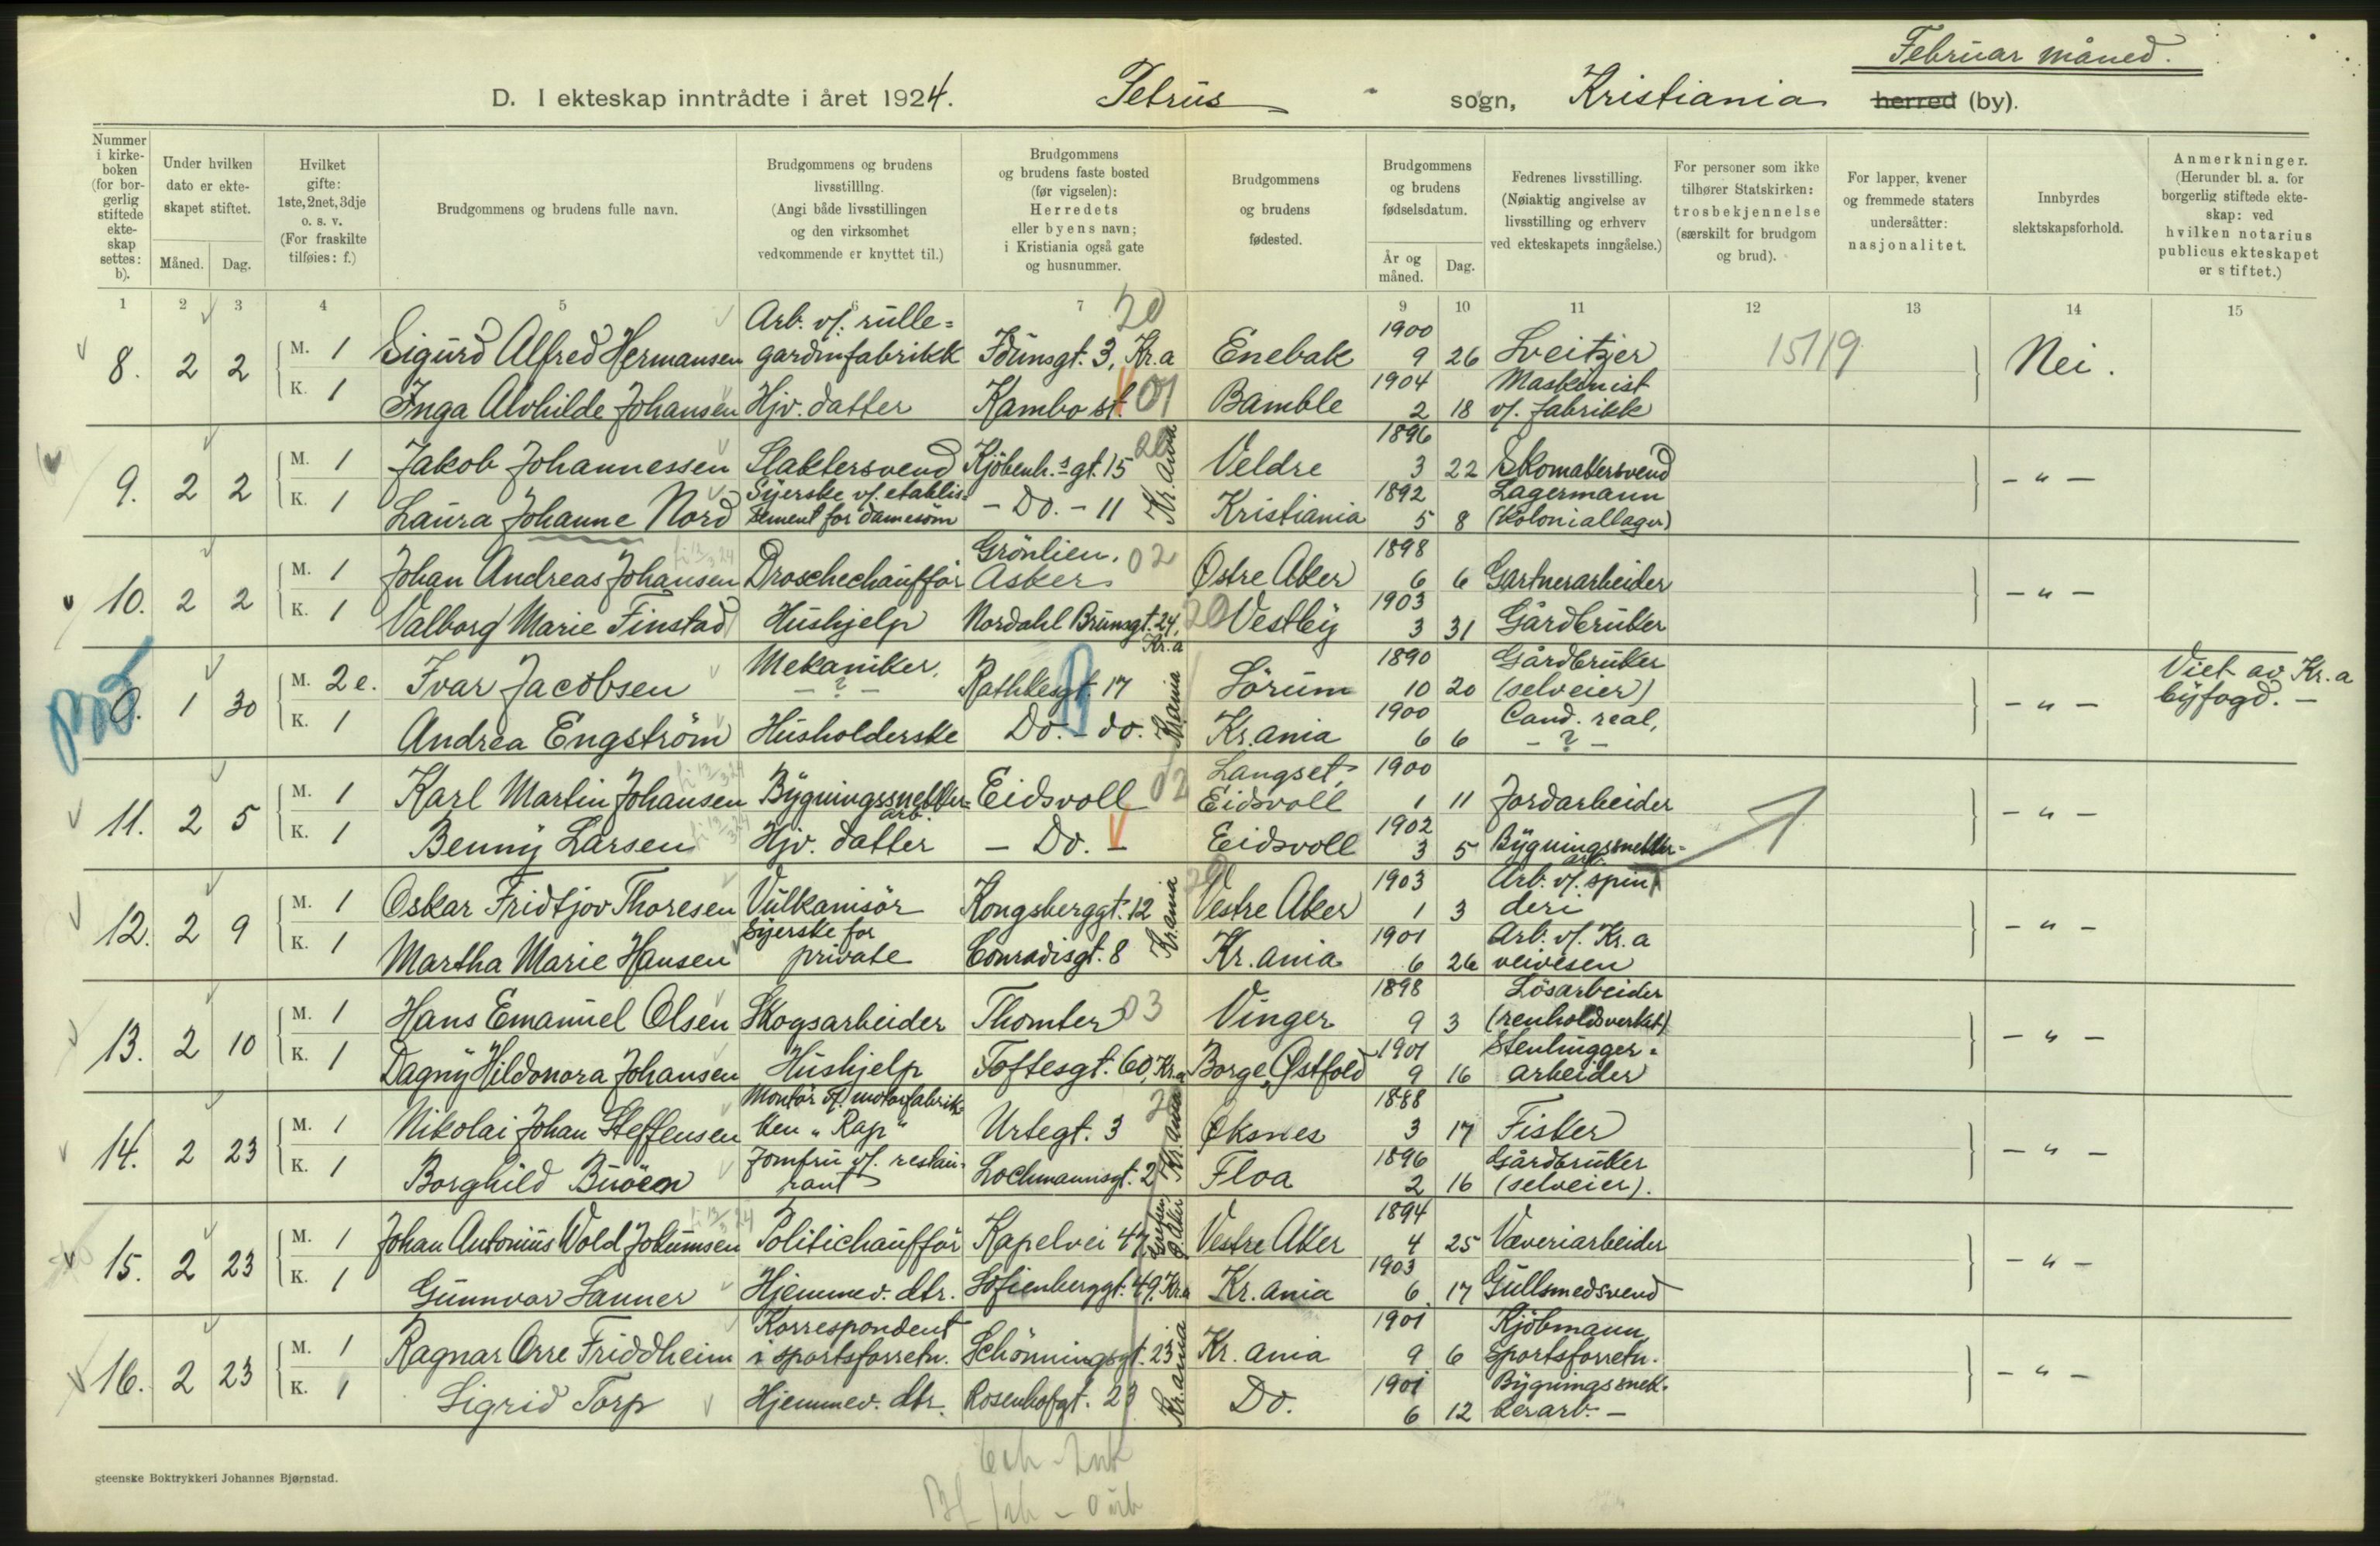 Februar måned.
D. I ekteskap inntrådte i året 1924. Petrus sogn, Kristiania herred (by).
Nummer i kirke-boken (for bor-gerlig stiftede ekte-skap settes: b).
Under hvilken dato er ekte-skapet stiftet.
Måned. Dag.
Hvilket gifte: 1ste, 2net, 3dje o. s. v. (For fraskilte tilføies: f.)
Brudgommens og brudens fulle navn.
Brudgommens og brudens livsstilling. (Angi både livsstillingen og den virksomhet vedkommende er knyttet til.)
Brudgommens og brudens faste bosted (før vigselen): Herredets eller byens navn; i Kristiania også gate og husnummer.
Brudgommens og brudens fødested.
Brudgommens og brudens fødselsdatum.
År og måned. Dag.
Fedrenes livsstilling. (Nøiaktig angivelse av livsstilling og erhverv ved ekteskapets inngåelse.)
For personer som ikke tilhører Statskirken: trosbekjennelse (særskilt for brudgom og brud).
For lapper, kvener og fremmede staters undersåtter: nasjonalitet.
Innbyrdes slektskapsforhold.
Anmerkninger. (Herunder bl. a. for borgerlig stiftede ekte-skap: ved hvilken notarius publicus ekteskapet er stiftet.)
1 2 3 4 5 6 7 9 10 11 12 13 14 15
8. 2 2 M. 1 Sigurd Alfred Hermansen Arb. v/. rulle=gardinfabrikk Idunsgt. 3, Kr.a 20 Enebak 1900 9 26 Sveitzer 15119 Nei.
K. 1 Inga Alvhilde Johansen Hjv. datter Kambo st. 01 Bamble 1904 2 18 Maskinist v/. fabrikk
9. 2 2 M. 1 Jakob Johannessen Slaktersvend Kjöbenh.s gt. 15 20 Kr.ania Veldre 1896 3 22 Skomakersvend - " -
K. 1 Laura Johanne Nord Syerske v/. etablis=sement for damesöm - Do. - 11 Kristiania 1892 5 8 Lagermann (Koloniallager)
10. 2 2 M. 1 Johan Andreas Johansen Droschechaufför Grönlien, Asker 02 Østre Aker 1898 6 6 Gartnerarbeider - " -
K. 1 Valborg Marie Finstad Hushjelp Nordahl Brunsgt. 24, Kr.a 20 Vestby 1903 3 31 Gårdbruker
1 30 M. 2 e. Ivar Jacobsen Mekaniker, - ? - Rathkesgt. 17 Kr.ania Sörum 1890 10 20 Gårdbruker (selveier) - " - Viet av Kr.a byfogd. -
K. 1 Andrea Engström Husholderske Do. - do. Kr.ania 1900 6 6 Cand. real, - ? -
11. 2 5 M. 1 Karl Martin Johansen Bygningssnekker=arb. Eidsvoll 02 Langset, Eidsvoll 1900 1 11 Jordarbeider - " -
K. 1 Benny Larsen Hjv. datter - Do. - Eidsvoll 1902 3 5 Bygningssnekker=arb.
12. 2 9 M. 1 Oskar Fridtjov Thoresen Vulkanisör Kongsberggt. 12 Kr.ania 20 Vestre Aker 1903 1 3 Arb. v/. spinderi - " -
K. 1 Martha Marie Hansen Syerske for private Conradisgt. 8 Kr.ania 1901 6 26 Arb. v/. Kr.a veivesen
13. 2 10 M. 1 Hans Emanuel Olsen Skogsarbeider Thomter 03 Vinger 1898 9 3 Lösarbeider (renholdsverket) - " -
K. 1 Dagny Hildonora Johansen Hushjelp Toftesgt. 60, Kr.a Borge, Østfold 1901 9 16 Stenhugger=arbeider
14. 2 23 M. 1 Nikolai Johan Steffensen Montör v/. motorfabrik=ken "Rap" Urtegt. 3 Kr.ania Øksnes 1888 3 17 Fisker - " -
K. 1 Borghild Buöen Jomfru v/. restau=rant Lochmannsgt. 2 Floa 1896 2 16 Gårdbruker (selveier).
15. 2 23 M. 1 Johan Antonius Wold Jokumsen Politichaufför Kapelvei 47 Grefsen Ø. Aker Vestre Aker 1894 4 25 Væveriarbeider - " -
K. 1 Gunnvor Sanner Hjemmev. dtr. Sofienberggt. 49, Kr.a Kr.ania 1903 6 17 Gullsmedsvend
16. 2 23 M. 1 Ragnar Orre Friddheim Korrespondent i sportsforretn. Schönningsgt. 23 Kr.ania Kr.ania 1901 9 6 Kjöbmann, sportsforretn. - " -
K. 1 Sigrid Torp Hjemmev. dtr. Rosenhofgt. 23 Do. 1901 6 12 Bygningssnek=kerarb. -
steenske Boktrykkeri Johannes Bjørnstad.